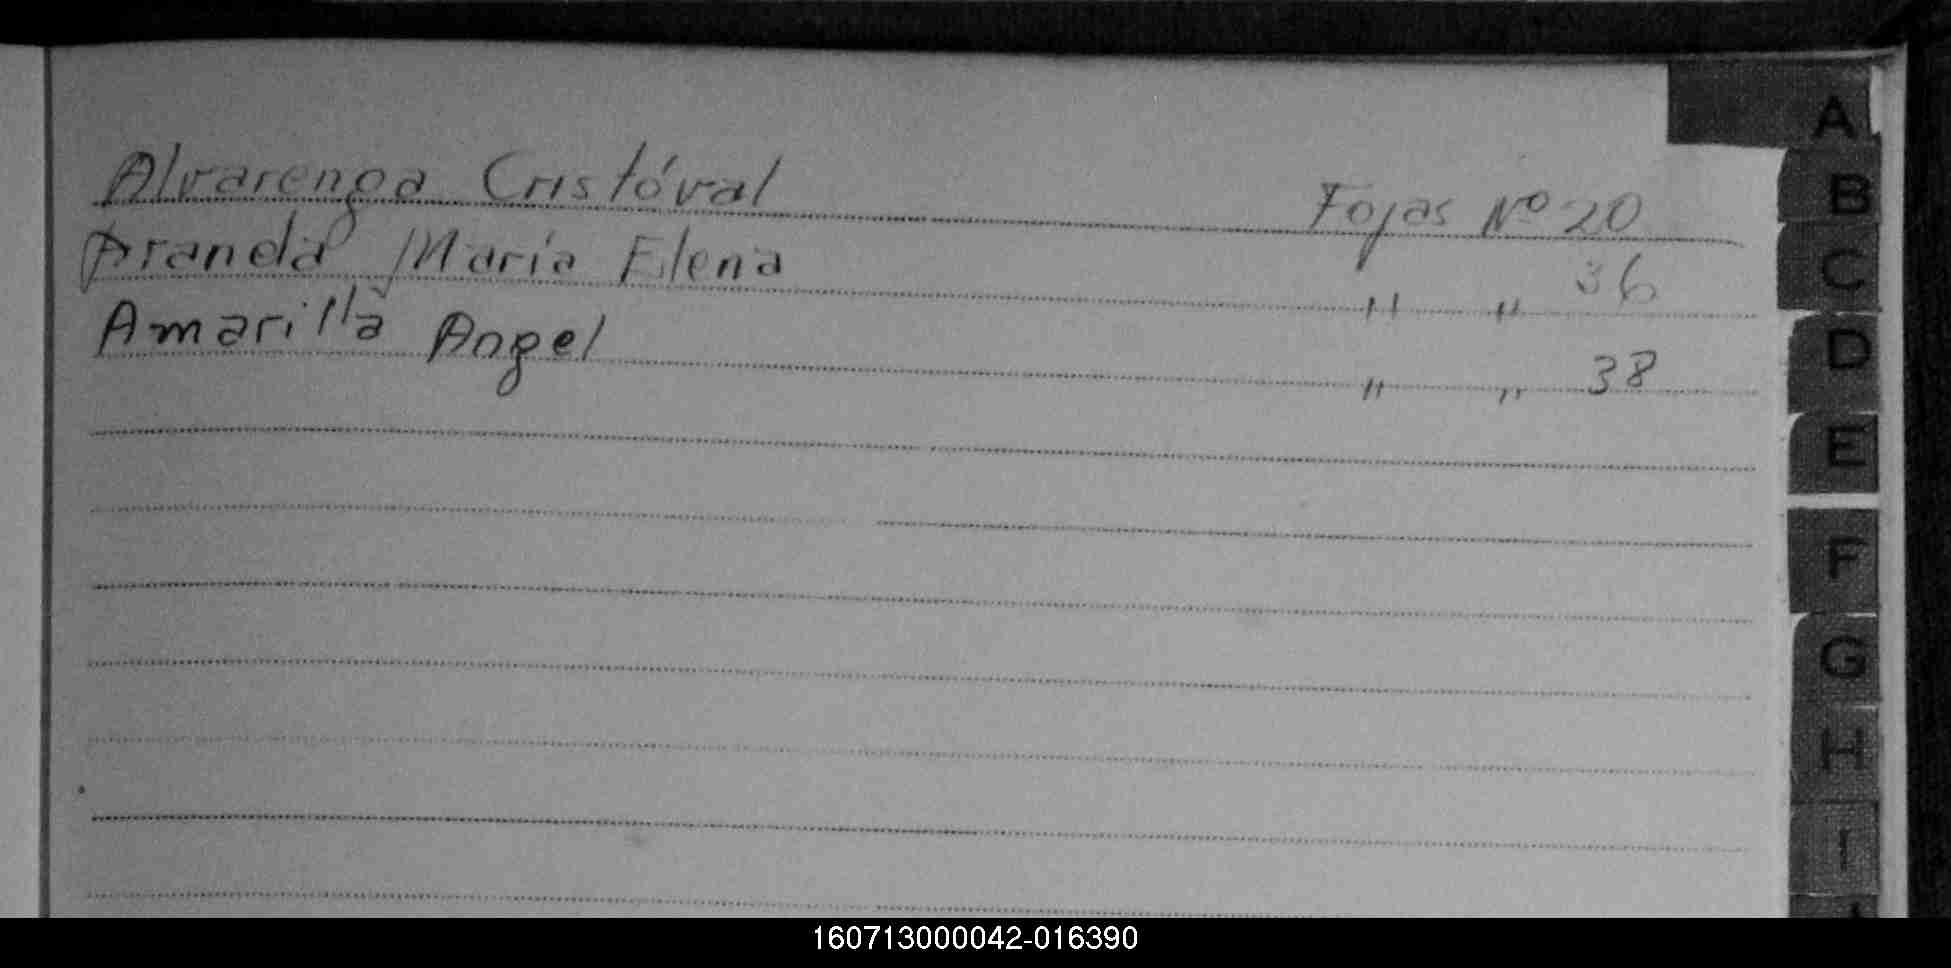 Alvarenga Cristóval Fojas Nº 20
Aranda María Elena " " 36
Amarilla Angel " " 38
A
B
C
D
E
F
G
H
I
160713000042-016390